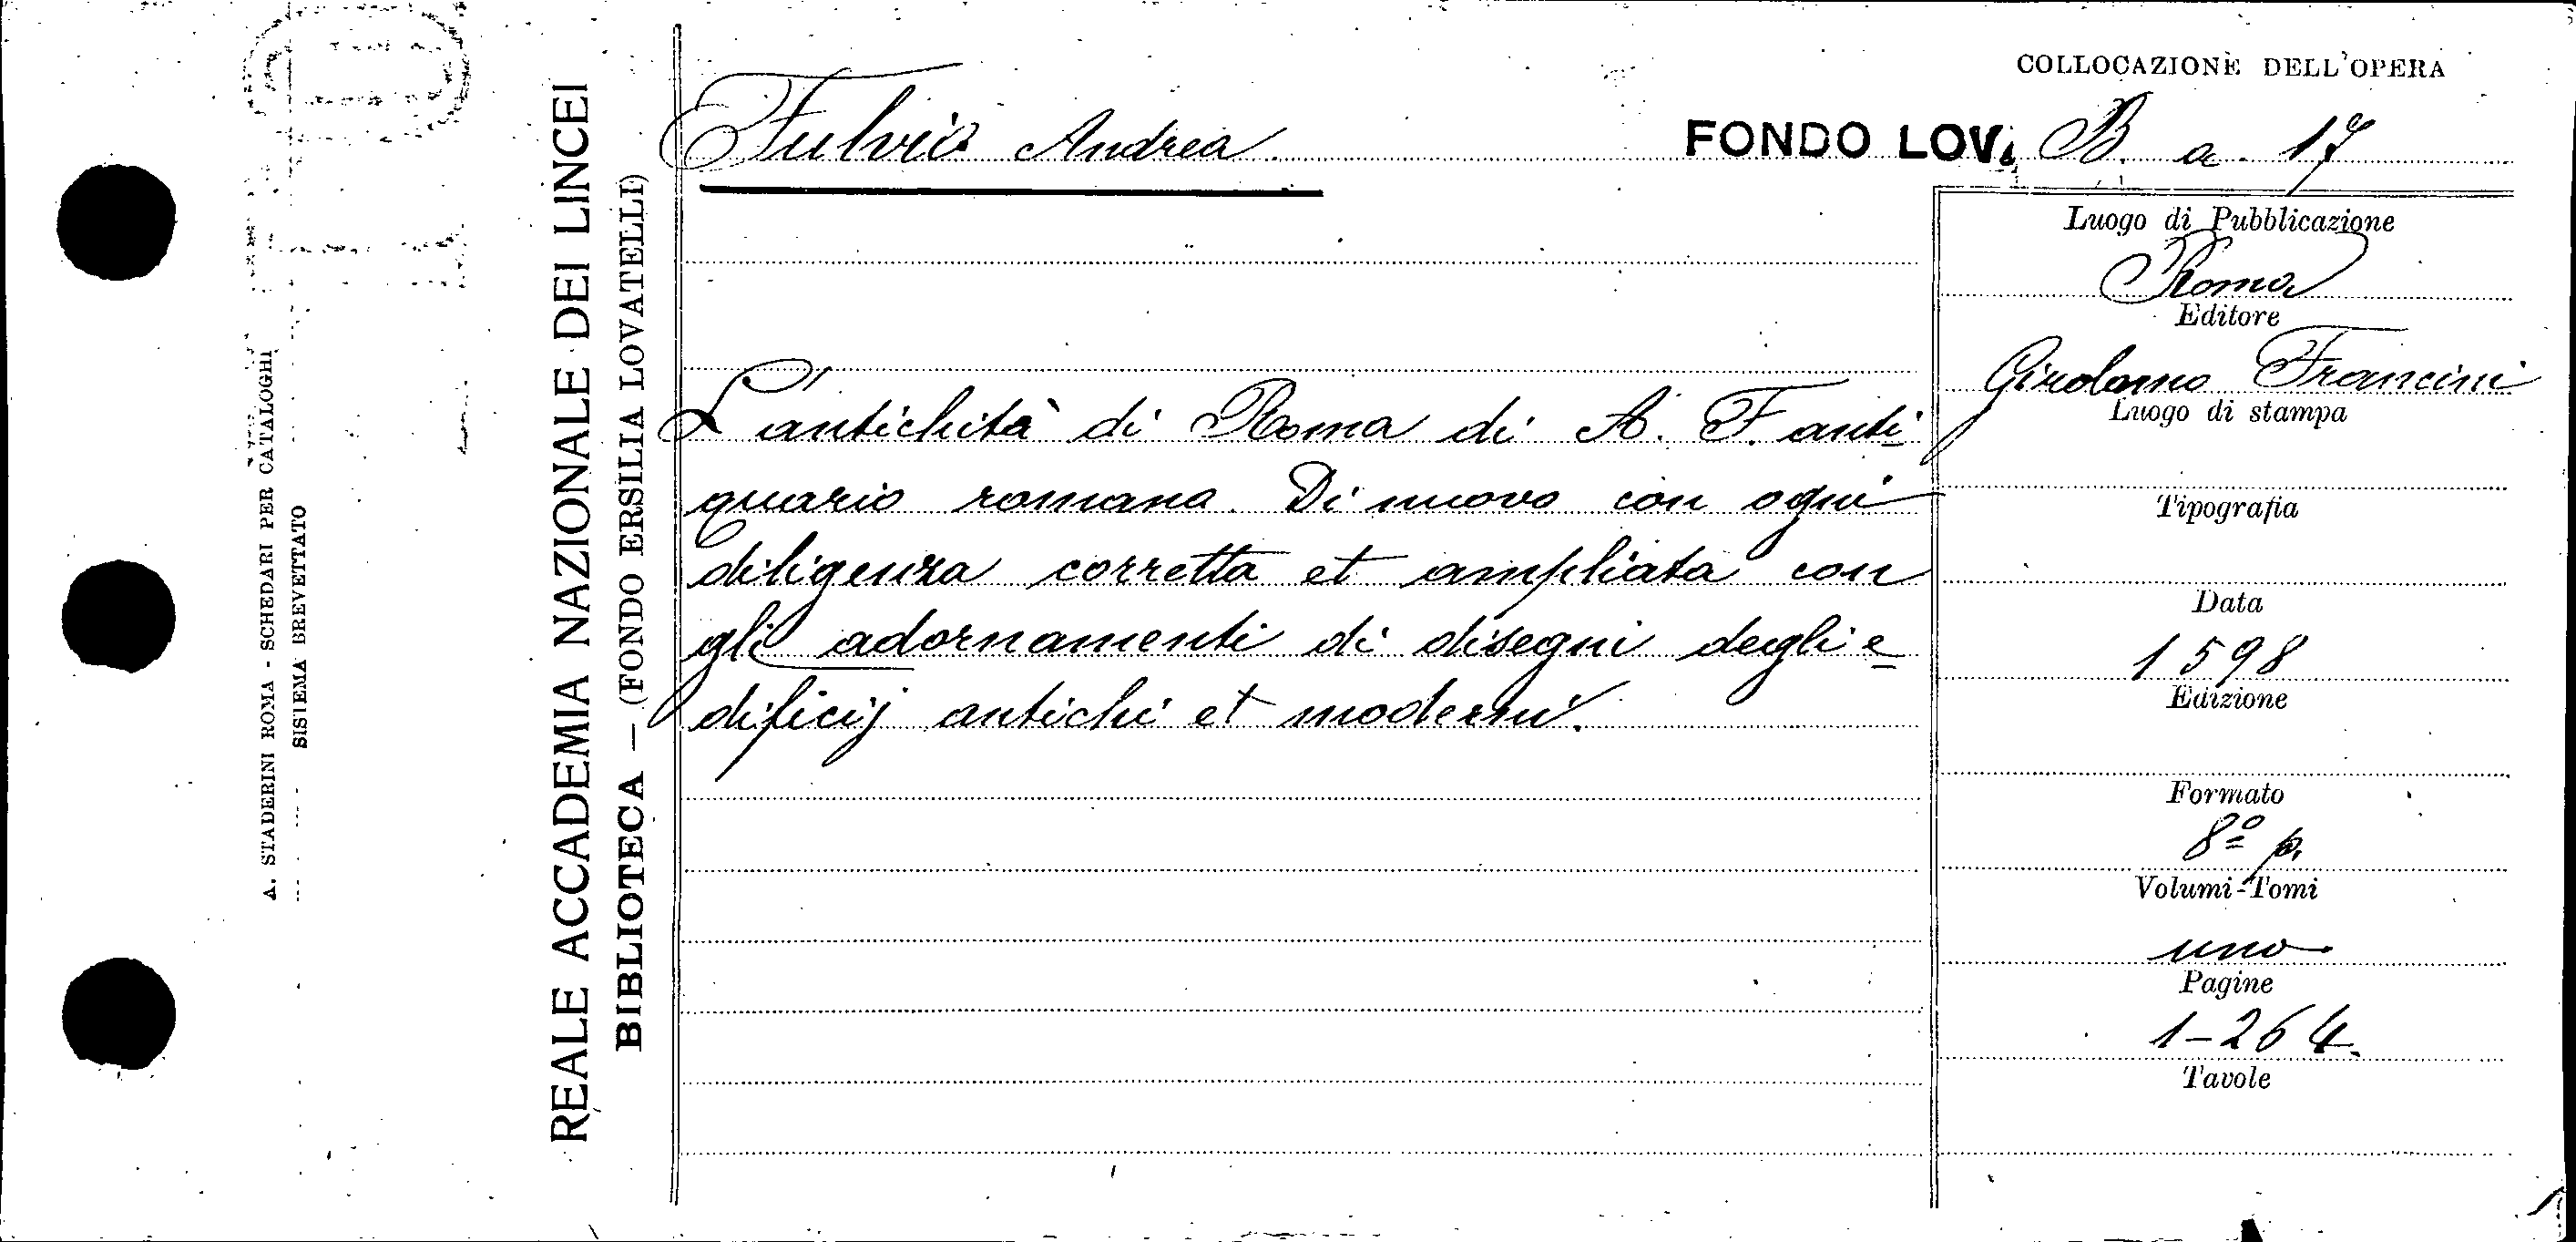 A. STADERINI ROMA - SCHEDARI PER CATALOGHI
SISTEMA BREVETTATO
REALE ACCADEMIA NAZIONALE DEI LINCEI
BIBLIOTECA — (FONDO ERSILIA LOVATELLI)
COLLOCAZIONE DELL'OPERA
Fulvio Andrea
FONDO LOV. B. a. 17
L'antichità di Roma di A. F. anti-
quario romano. Di nuovo con ogni
diligenza corretta et ampliata con
gli adornamenti di disegni degli e-
dificij antichi et moderni.
Luogo di Pubblicazione
Roma
Editore
Girolamo Francini
Luogo di stampa
Tipografia
Data
1598
Edizione
Formato
8º p.
Volumi-Tomi
uno
Pagine
1-264.
Tavole